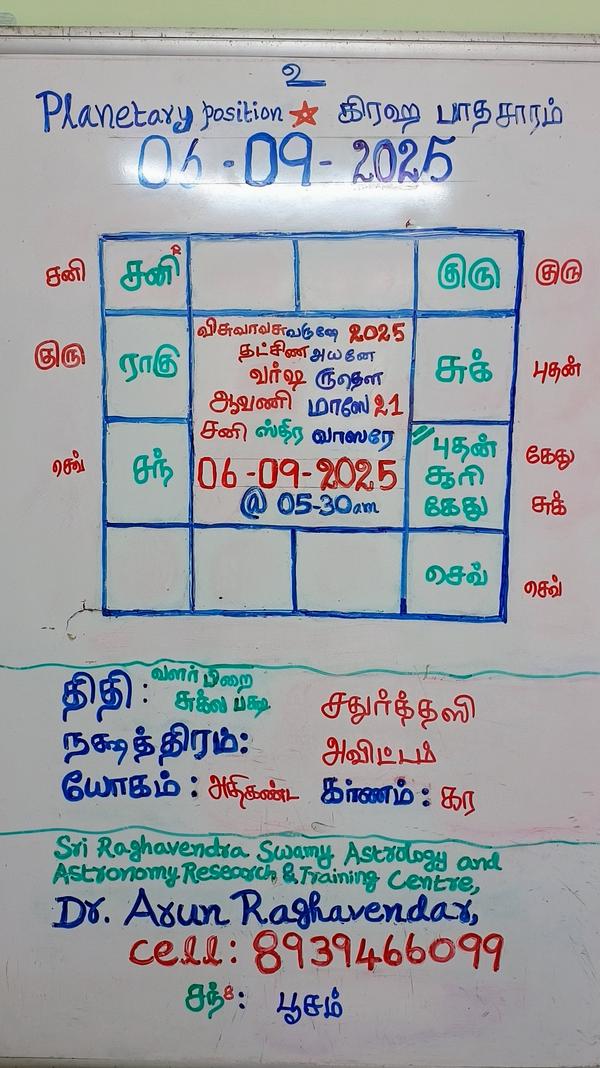 உ
Planetary position ☆ கிரஹ பாதசாரம்
06-09-2025
சனி
சனி R
குரு
குரு
குரு
ராகு
விசுவாவசுவருஷே 2025
தட்சிண அயனே
வர்ஷ ருதௌ
ஆவணி மாஸே 21
சனி ஸ்திர வாஸரே
06-09-2025
@ 05-30am
சுக்
புதன்
செவ்
சந்
புதன்
சூரி
கேது
கேது
சுக்
செவ்
செவ்
திதி : வளர் பிறை
சுக்ல பக்ஷ
சதுர்த்தஸி
நக்ஷத்திரம்: அவிட்டம்
யோகம் : அதிகண்ட கர்ணம் : கர
Sri Raghavendra Swamy Astrology and
Astronomy Research & Training Centre,
Dr. Arun Raghavendar,
cell: 8939466099
சந்8: பூசம்